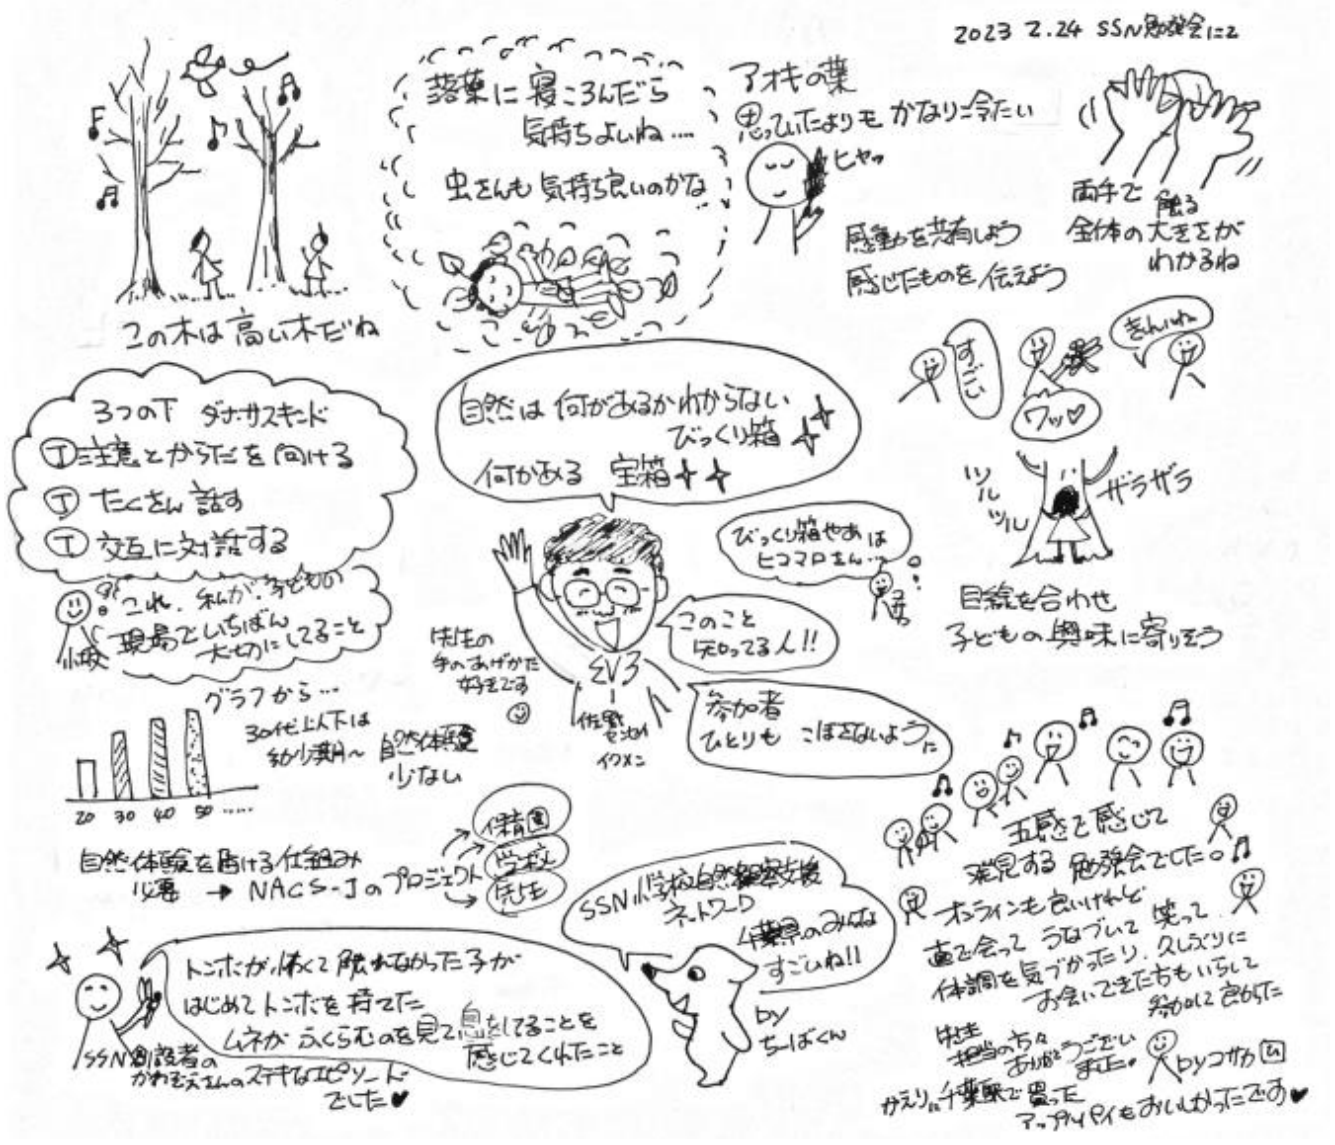 2023 2.24 SSN勉強会にて
この木は高い木だね
落葉に寝ころんだら
気持ちよいね....
虫さんも気持ち良いのかな
アオキの葉
思っていたよりもかなり冷たい
ヒヤッ
感動を共有しよう
感じたものを伝えよう
両手で触る
全体の大きさが
わかるね
3つのT ダナ・サスキンド
Ⓣ 注意とからだを向ける
Ⓣ たくさん話す
Ⓣ 交互に対話する
これ、私が、子どもの
現場でいちばん
大切にしてること
小坂
自然は何があるかわからない
びっくり箱
何かある 宝箱
びっくり箱やあは
ヒコマロさん…
このこと
知ってる人!!
参加者
ひとりも こぼさないように
先生の
手のあげかた
好きです
佐野
センセイ
イケメン
すごい
きれいね
ワッ♡
ツルツル
ザラザラ
目線を合わせ
子どもの興味に寄りそう
グラフから…
30代以下は
幼少期〜 自然体験
少ない
20 30 40 50 ......
自然体験を届ける仕組み
必要 → NACS-Jのプロジェクト
保育園
学校
先生
SSN 小学校自然観察支援
ネットワーク
千葉県のみんな
すごいね!!
by
ちーばくん
トンボが怖くて触れなかった子が
はじめてトンボを持てた
ムネがふくらむのを見て息をしてることを
感じてくれたこと
SSN創設者の
かわぞえさんのステキなエピソード
でした♥
五感で感じて
発見する勉強会でした。
オンラインも良いけれど
直で会って うなづいて 笑って
体調を気づかったり、久しぶりに
お会いできた方もいらして
参加して良かった
先生
担当の方々
ありがとうござい
ます。
byコサカ
かえりに千葉駅で買った
アップルパイもおいしかったです♥